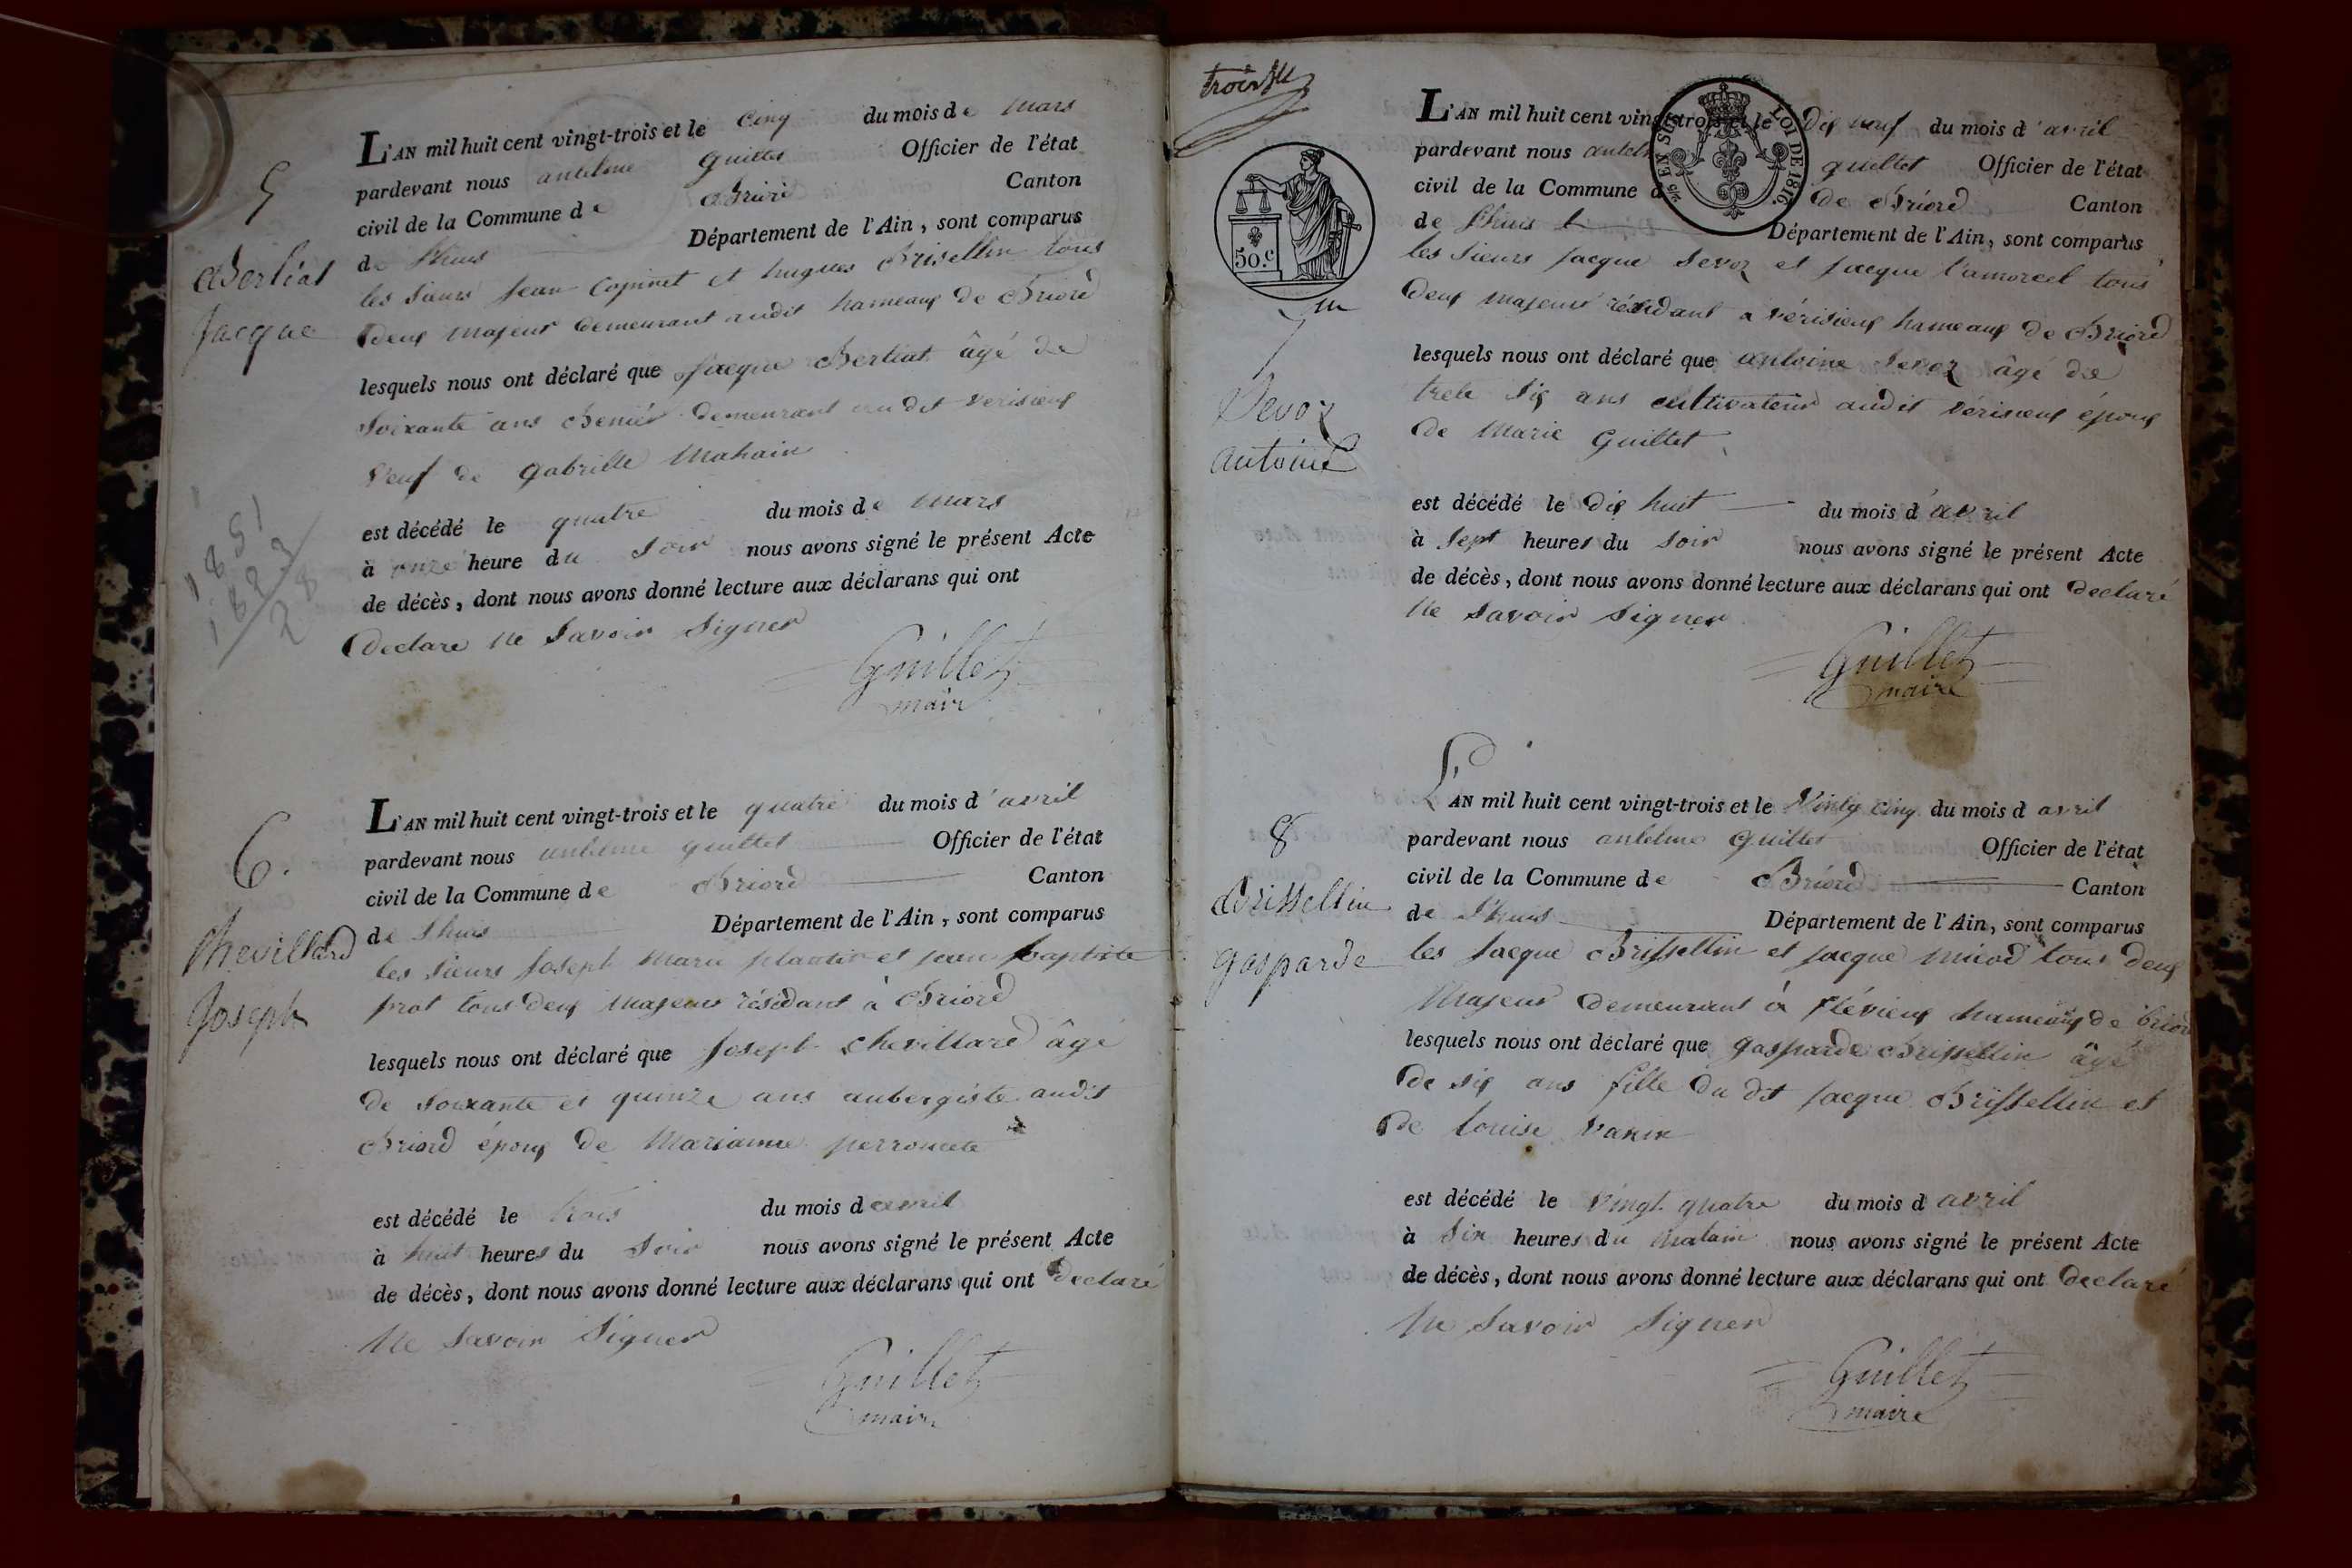 5
Berliat
Jacque
L'AN mil huit cent vingt-trois et le cinq du mois de mars
pardevant nous antelme Guillet Officier de l'état
civil de la Commune de Briord Canton
de Lhuis Département de l'Ain, sont comparus
les Sieurs Jean Copinet et hugues Brisellin tous
deux majeur demeurant audit hameaux de Briord
lesquels nous ont déclaré que Jacque Berliat âgé de
Soixante ans demeurant au dit Verisieux
Veuf de gabrille Mahain
est décédé le quatre du mois de mars
à onze heure du Soir nous avons signé le présent Acte
de décès, dont nous avons donné lecture aux déclarans qui ont
declare ne Savoir Signer
Guillet
maire
1851
1823
28
6.
Chevillard
Joseph
L'AN mil huit cent vingt-trois et le quatre du mois d'avril
pardevant nous antelme guillet Officier de l'état
civil de la Commune de Briord Canton
de Lhuis Département de l'Ain, sont comparus
les Sieurs Joseph Marie plantier et jean baptiste
prat tous deux Majeur résidant à Briord
lesquels nous ont déclaré que Joseph chevillard âgé
de Soixante et quinze ans aubergiste audit
Briord époux de Marianne perroncete
est décédé le trois du mois d avril
à huit heures du Soir nous avons signé le présent Acte
de décès, dont nous avons donné lecture aux déclarans qui ont declaré
Ne Savoir Signer
Guillet
maire
trois
50.c
EN SUS LOI DE 1816.
7
Sevoz
antoine
L'AN mil huit cent vingt-trois et le dix neuf du mois d'avril
pardevant nous antelme guillet Officier de l'état
civil de la Commune de Briord Canton
de Lhuis Département de l'Ain, sont comparus
les Sieurs Jacque Sevoz et Jacque l'amorcel tous
deux majeur résidant a vérisieux hameaux de Briord
lesquels nous ont déclaré que antoine Sevoz âgé de
trete Six ans cultivateur audit Vérisieux époux
de Marie Guillet
est décédé le dix huit du mois d'avril
à Sept heures du Soir nous avons signé le présent Acte
de décès, dont nous avons donné lecture aux déclarans qui ont declaré
Ne Savoir Signer
Guillet
maire
8
Brissellin
Gasparde
L'AN mil huit cent vingt-trois et le Vintg cinq du mois d avril
pardevant nous antelme Guillet Officier de l'état
civil de la Commune de Briord Canton
de Lhuis Département de l'Ain, sont comparus
les Jacque Brissellin et Jacque micod tous deux
Majeur demeurant à flévieux hameaux de briord
lesquels nous ont déclaré que gasparde Brissellin âgé
de Six ans fille du dit Jacque Brissellin et
de Louise Varin
est décédé le Vingt quatre du mois d avril
à Six heures du Matain nous avons signé le présent Acte
de décès, dont nous avons donné lecture aux déclarans qui ont declaré
Ne Savoir Signer
Guillet
maire